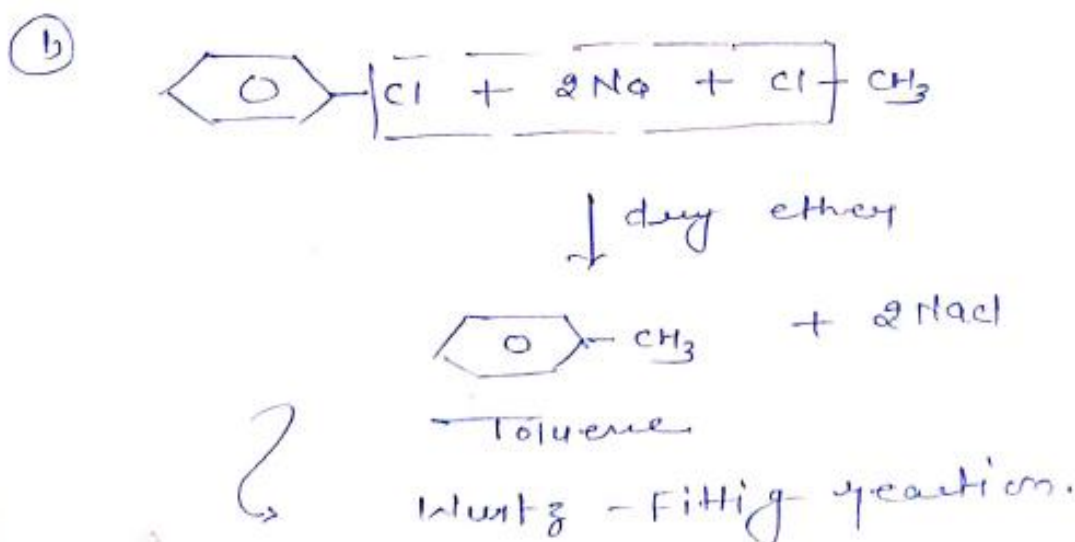 b
Cl + 2Na + Cl - CH3
dry ether
- CH3 + 2NaCl
Toluene
Wurtz - Fittig reaction.